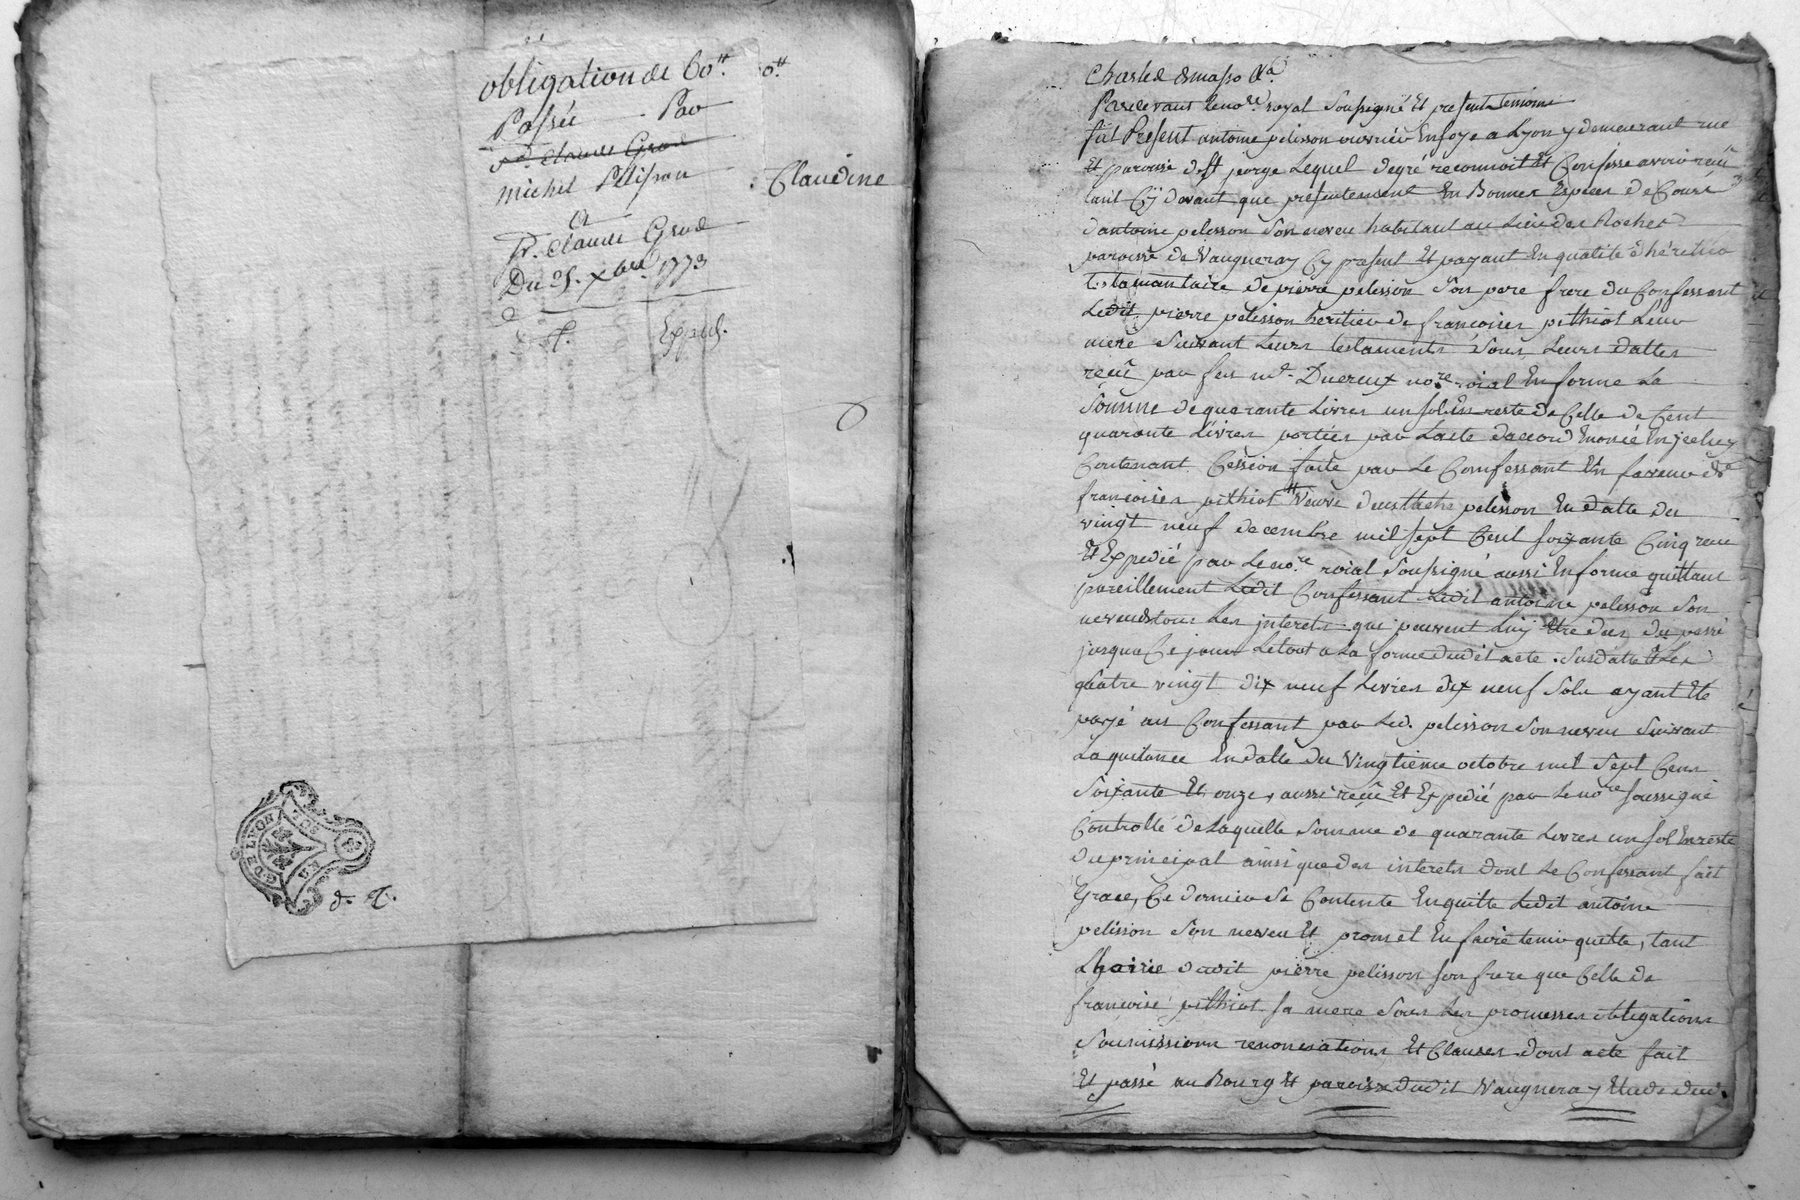 obligation de 60ᵗᵗ.
Passée Par
michel Pelisson
Et
Sr. Claude Grod
Du 25. Xbre. 1773
Expéd.
Claudine
G. DE LYON
SOLS
d. T.
Pardevant le nore. royal soussigné Et present temoins
fut Present antoine pelisson ouvrier En soye a Lyon y demeurant rue
Et paroisse de St jeorge Lequel degré reconnoit Et Confesse avoir reçû
tant Cy devant que presentement En Bonnes Especes de Cours
d'antoine pelisson Son neveu habitant au Lieu des Roches
paroisse de Vaugneray Cy present Et payant En qualité d'héritier
testamantaire de pierre pelisson Son pere frere du Confessant
Ledit pierre pelisson heritier de francoises pithiot Leur
mere Suivant Leurs testaments Sous Leurs dattes
reçû par feu me. Ducreux nore. roial En forme La
Somme de quarante Livres un sol En reste de Celle de Cent
quarante Livres portées par Lacte daccord
Contenant Cession faite par Le Confessant En faveur de
francoises pithiot Veuve deustache pelisson En datte du
vingt neuf decembre mil sept Cent soixante Cinq reçu
Et Expedié par Le nore. roial Soussigné aussi En forme quittant
pareillement Ledit Confessant Ledit antoine pelisson Son
neveu de tous Les interets que peuvent Luy Etre dus du passé
jusqua Ce jour Le tout a La forme dudit acte Susdatté Les
quatre vingt dix neuf Livres dix neuf Sols ayant Eté
payé au Confessant par Led. pelisson Son neveu Suivant
La quitance En datte du Vingtieme octobre mil Sept Cens
Soixante Et onze, aussi reçû Et Expedié par Le nore soussigné
Controllé de Laquelle Somme de quarante Livres un sol En reste
du principal ainsi que des interets dont Le Confessant fait
Grace, Ce dernier Se Contente En quitte Ledit antoine
pelisson Son neveu Et promet En faire tenir quitte, tant
Lhoirie dudit pierre pelisson son frere que Celle de
francoise pithiot sa mere Sous Les promesses obligations
Soumissions renonciations Et Clauses dont acte fait
Et passé au Bourg Et paroisse dudit Vaugneray Etude dud.